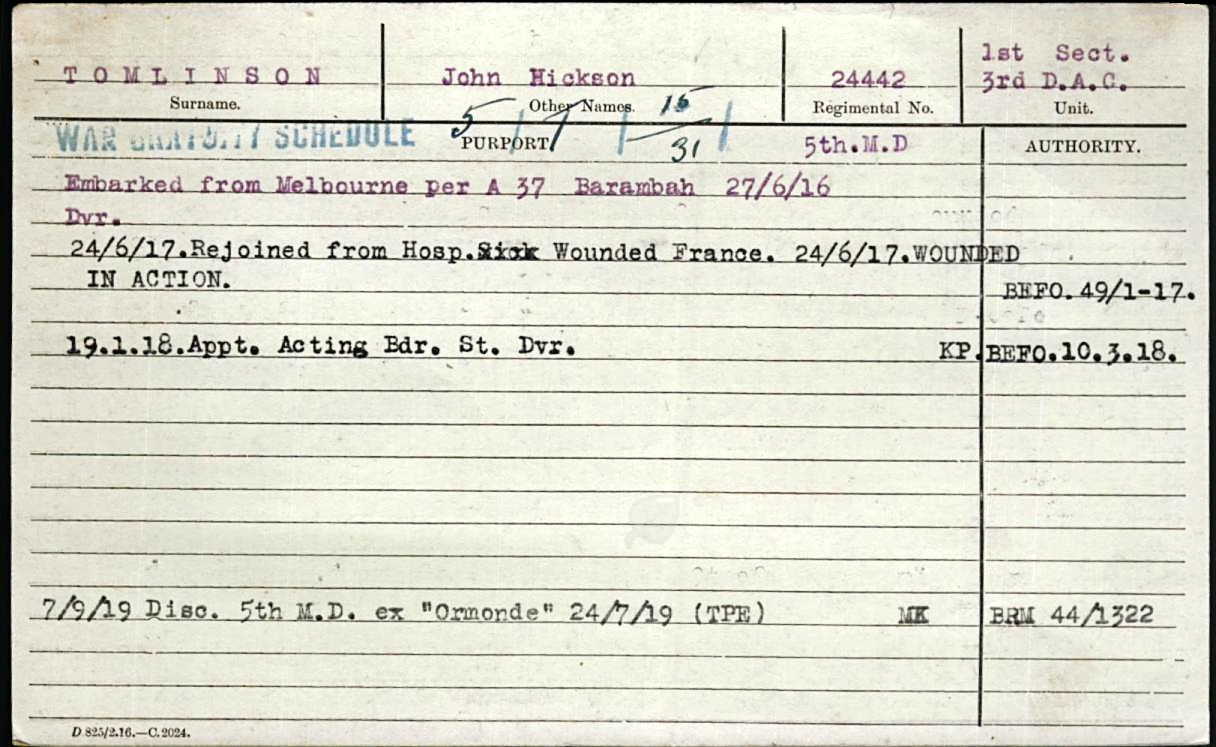 1st Sect.
TOMLINSON John Hickson 24442 3rd D.A.C.
Surname. Other Names. Regimental No. Unit.
WAR GRATUITY SCHEDULE PURPORT 5/7/15/31 5th.M.D AUTHORITY.
Embarked from Melbourne per A 37 Barambah 27/6/16
Dvr.
24/6/17.Rejoined from Hosp.Sick Wounded France. 24/6/17.WOUNDED
IN ACTION. BEFO.49/1-17.
19.1.18.Appt. Acting Bdr. St. Dvr. KP. BEFO.10.3.18.
7/9/19 Disc. 5th M.D. ex "Ormonde" 24/7/19 (TPE) MK BRM 44/1322
D 825/2.16.—C.2024.